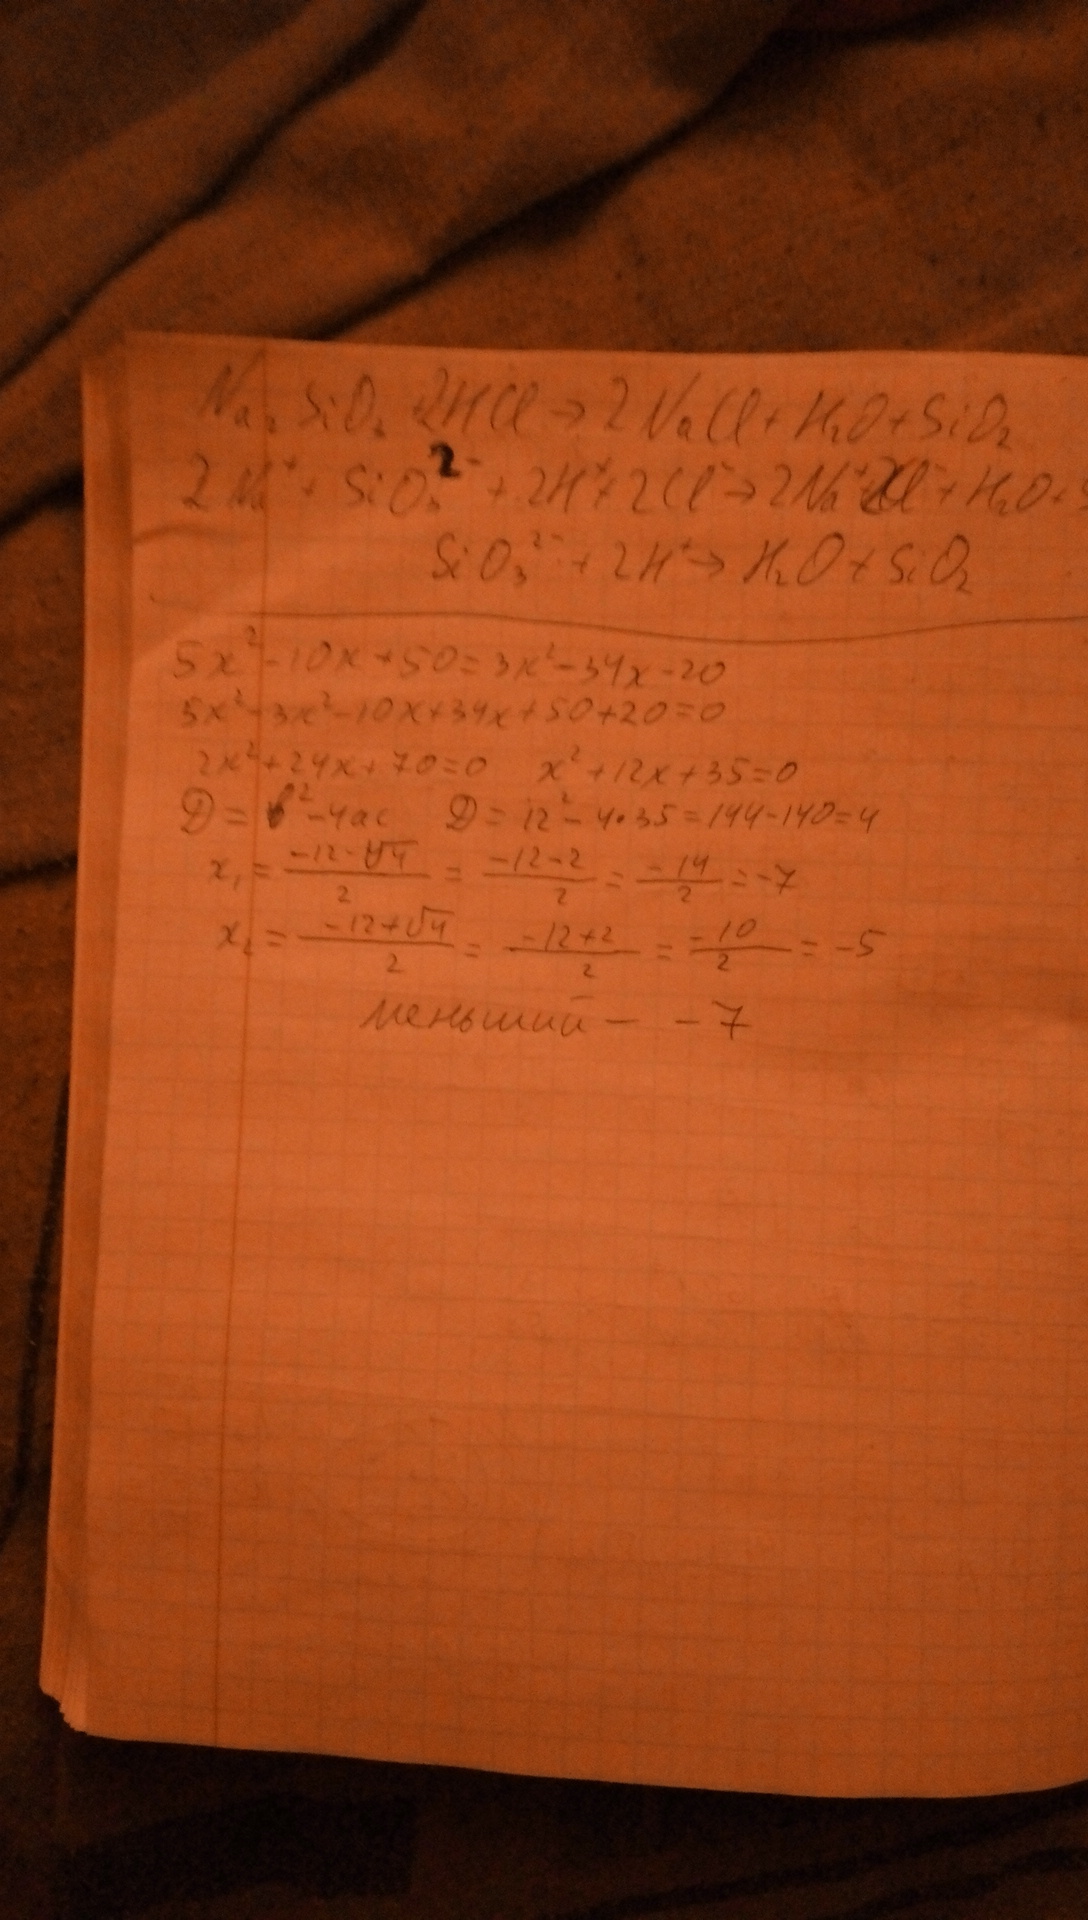 Na₂SiO₃ + 2HCl → 2NaCl + H₂O + SiO₂
2Na⁺ + SiO₃²⁻ + 2H⁺ + 2Cl⁻ → 2Na⁺ 2Cl⁻ + H₂O +
SiO₃²⁻ + 2H⁺ → H₂O + SiO₂
5x² - 10x + 50 = 3x² - 34x - 20
5x² - 3x² - 10x + 34x + 50 + 20 = 0
2x² + 24x + 70 = 0 x² + 12x + 35 = 0
D = b² - 4ac D = 12² - 4·35 = 144 - 140 = 4
x₁ = (-12-√4)/2 = (-12-2)/2 = -14/2 = -7
x₂ = (-12+√4)/2 = (-12+2)/2 = -10/2 = -5
меньший — -7